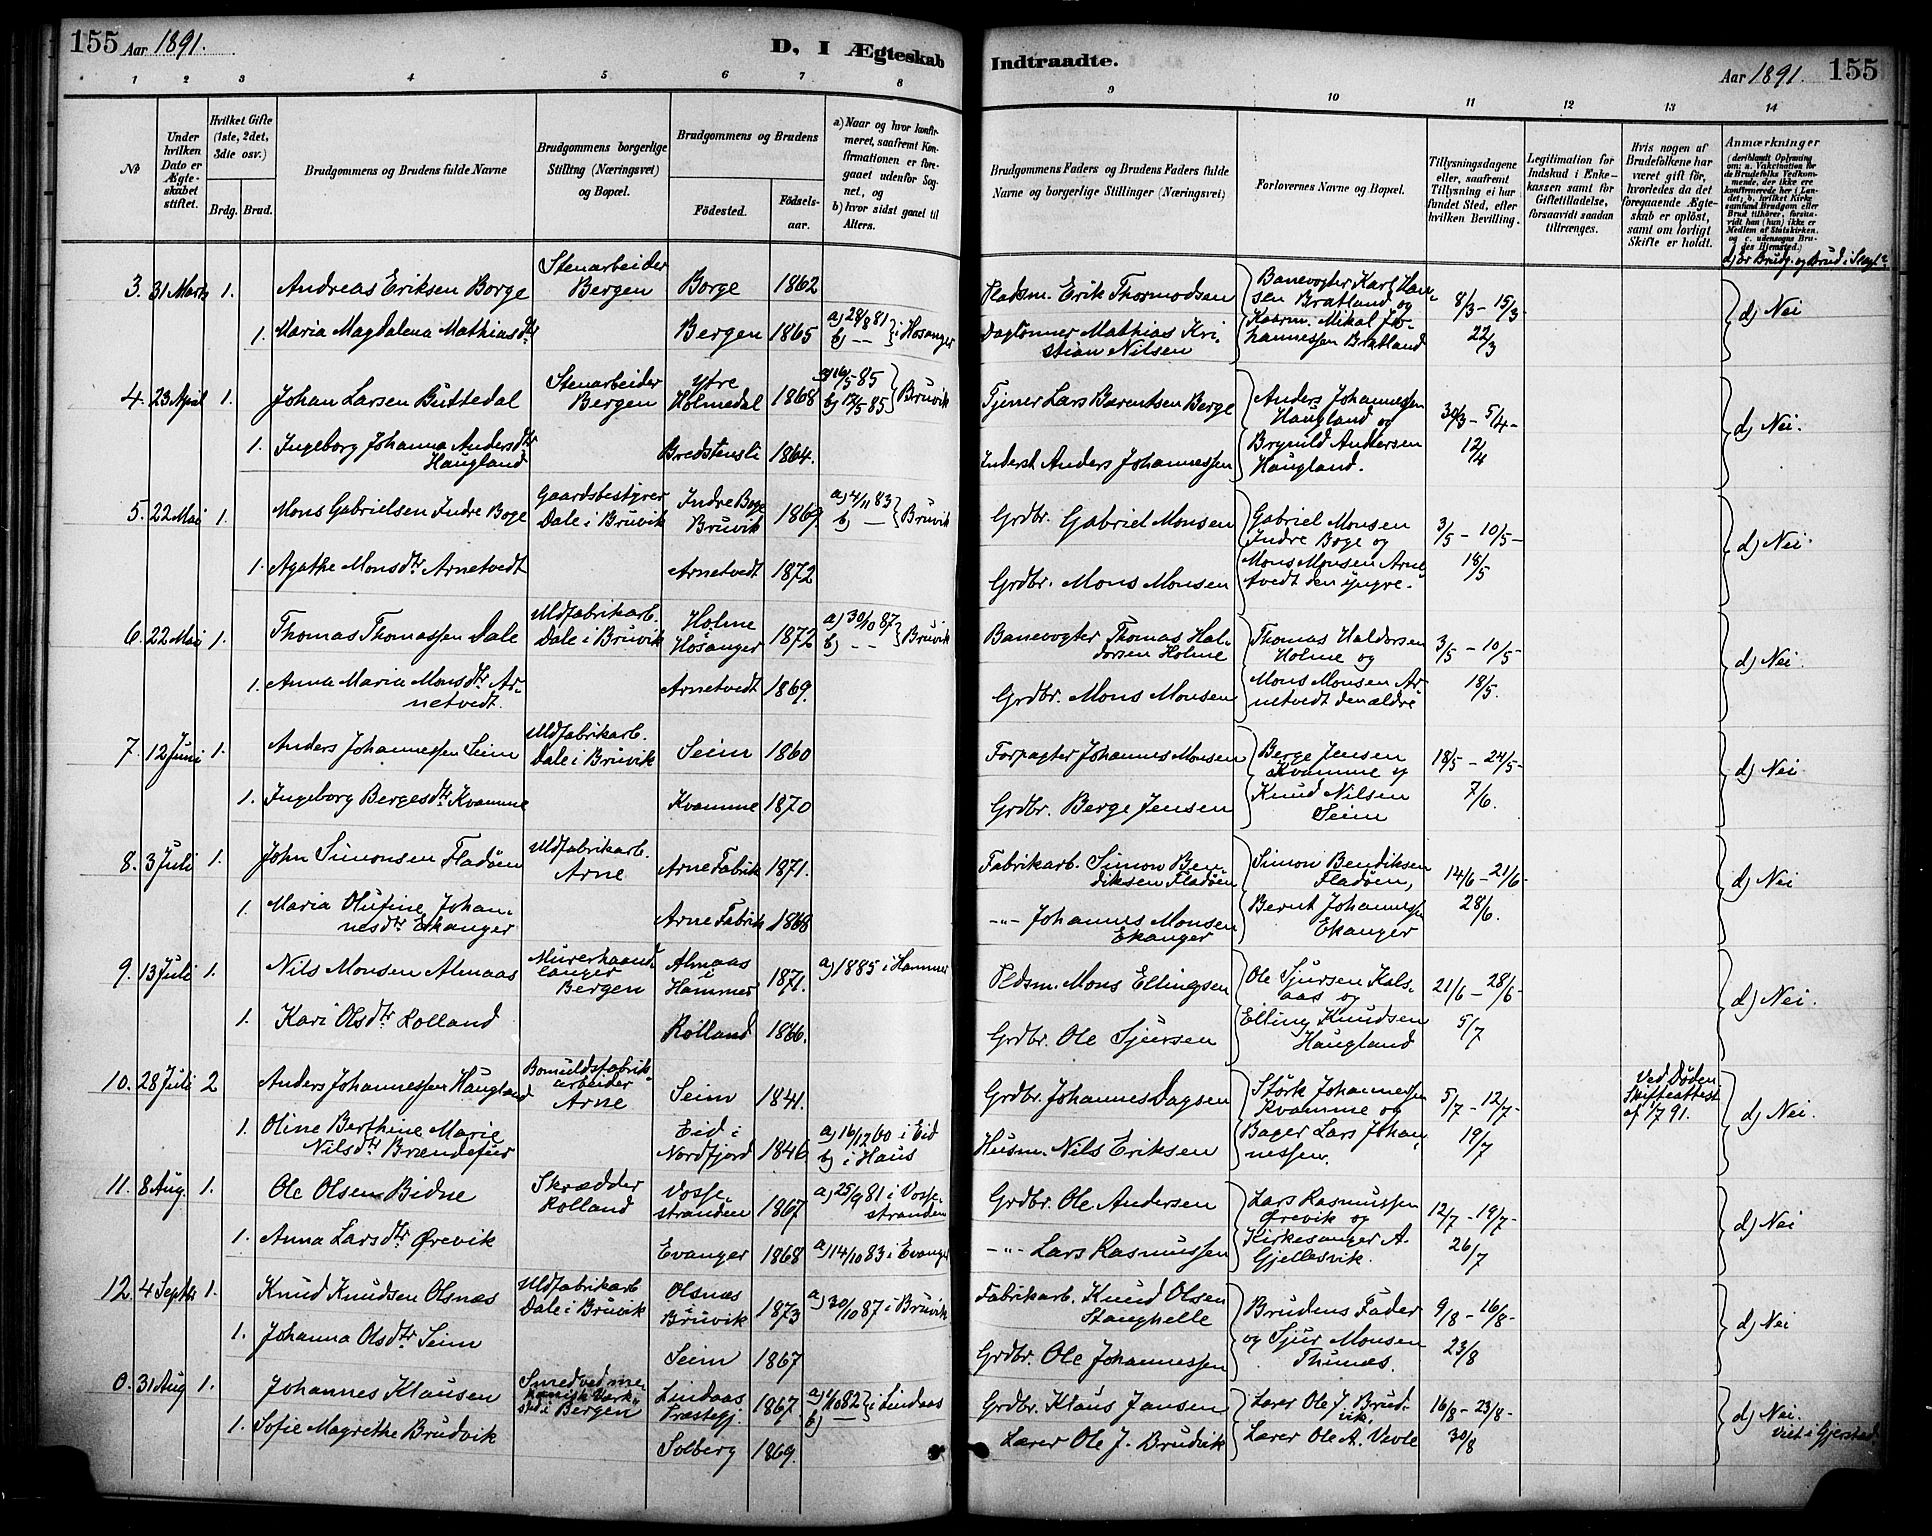 155 Aar 1891.
D, I Ægteskab Indtraadte.
Aar 1891. 155
1 2 3 4 5 6 7 8 9 10 11 12 13 14
No
Under hvilken Dato er Ægteskabet stiftet.
Hvilket Gifte (1ste, 2det, 3die osv.)
Brdg. Brud.
Brudgommens og Brudens fulde Navne
Brudgommens borgerlige Stilling (Næringsvei) og Bopæl.
Brudgommens og Brudens
Fødested. Fødselsaar.
a) Naar og hvor konfirmeret, saafremt Konfirmationen er foregaaet udenfor Sognet, og
b) hvor sidst gaaet til Alters.
Brudgommens Faders og Brudens Faders fulde Navne og borgerlige Stillinger (Næringsvei)
Forlovernes Navne og Bopæl.
Tillysningsdagene eller, saafremt Tillysning ei har fundet Sted, efter hvilken Bevilling.
Legitimation for Indskud i Enkekassen samt for Giftetilladelse, forsaavidt saadan tiltrænges.
Hvis nogen af Brudefolkene har været gift før, hvorledes da det foregaaende Ægteskab er opløst, samt om lovligt Skifte er holdt.
Anmærkninger
(deriblandt Oplysning om: a. Vakcination for de Brudefolks Vedkommende, der ikke ere konfirmerede her i Landet; b. hvilket Kirkesamfund Brudgom eller Brud tilhører, forsaavidt han (hun) ikke er Medlem af Statskirken, og c. udensogns Brudes Hjemsted.)
d) Er Brudg. og Brud i Slægt?
3. 31 Marts 1. Andreas Eriksen Borge Stenarbeider Bergen Borge 1862 Pladsm. Erik Thormodsen Banevogter Karl Hansen Bratland og 8/3 - 15/3 - d) Nei
1. Maria Magdalena Mathiasdtr Bergen 1865 a) 28/8 81 b) -- i Hosanger Daglønner Mathias Kristian Nilsen Kaarm. Mikal Johannessen Bratland 22/3
4. 23 April 1. Johan Larsen Buttedal Stenarbeider Bergen Ytre Holmedal 1868 a) 10/5 85 b) 17/5 85 Bruvik Tjener Lars Barentsen Berge Anders Johannessen Haugland og 30/3 - 5/4 - d) Nei.
1. Ingeborg Johanna Andersdtr Haugland Bredstensli 1864. Inderst Anders Johannessen Brynild Andersen Haugland. 12/4
5. 22 Mai 1. Mons Gabrielsen Indre Boge Gaardsbestyrer Dale i Bruvik Indre Boge Bruvik 1869 a) 4/11 83 b) — Bruvik Grdbr. Gabriel Monsen Gabriel Monsen Indre Boge og 3/5 - 10/5 - d) Nei.
1. Agathe Monsdtr Arnetvedt Arnetvedt 1872 Grdbr. Mons Monsen Mons Monsen Arnetvedt den yngre. 18/5
6. 22 Mai 1. Thomas Thomassen Dale Uldfabrikarb. Dale i Bruvik Holme Hosanger 1872 a) 30/10 87 b) -- Bruvik Banevogter Thomas Haldorsen Holme Thomas Haldorsen Holme og 3/5 - 10/5 - d) Nei.
1. Anna Maria Monsdtr Arnetvedt. Arnetvedt 1869. Grdbr. Mons Monsen Mons Monsen Arnetvedt den ældre 18/5.
7. 12 Juni 1. Anders Johannessen Seim Uldfabrikarb. Dale i Bruvik Seim 1860 Forpagter Johannes Monsen Berge Jensen Kvamme og 18/5 - 24/5 - d) Nei.
1. Ingeborg Bergesdtr Kvamme Kvamme 1870 Grdbr. Berge Jensen Knud Nilsen Seim 7/6.
8. 3 Juli 1. John Simonsen Fladøen Uldfabrikarb. Arne Arne Fabrik 1871. Fabrikarb. Simon Bendiksen Fladøen Simon Bendiksen Fladøen, 14/6 - 21/6 - d) Nei
1. Maria Olufine Johannesdtr Ekanger Arne Fabrik 1868 -"- Johannes Monsen Ekanger Bernt Johannessen Ekanger 28/6.
9. 13 Juli 1. Nils Monsen Almaas Murerhaandlanger Bergen Almaas i Hammer 1871. a) 1885 i Hammer Pldsm. Mons Ellingsen Ole Sjursen Kalsaas og 21/6 - 28/6 - d) Nei.
1. Kari Olsdtr Rolland Rolland 1866. Grdbr. Ole Sjursen Elling Knudsen Haugland 5/7
10. 28 Juli 2 Anders Johannessen Haugland Bomuldsfabrikarbeider Arne Seim 1841. Grdbr. Johannes Dagsen Størk Johannessen Kvamme og 5/7 - 12/7 - Ved Døden Skifteattest af 1/7 91. d) Nei.
1. Oline Berthine Marie Nilsdtr Brændefur Eid i Nordfjord 1846 a) 16/12 60 i Eid b) i Haus Husm. Nils Eriksen Bager Lars Johannessen. 19/7
11. 8 Aug. 1. Ole Olsen Bidne Skrædder Rolland Vossestranden 1867 a) 25/9 81 i Vossestranden Grdbr. Ole Andersen Lars Rasmussen Ørevik og 12/7 - 19/7 - d) Nei
1. Anna Larsdtr Ørevik Evanger 1868 a) 14/10 83 i Evanger -"- Lars Rasmussen Kirkesanger A. Gjellesvik. 26/7
12. 4 Septbr 1. Knud Knudsen Olsnæs Uldfabrikarb Dale i Bruvik Olsnæs Bruvik 1873 a) 30/10 87 i Bruvik Fabrikarb. Knud Olsen Stanghelle Brudens Fader 9/8 - 16/8 - d) Nei
1. Johanna Olsdtr Seim Seim 1867 Grdbr. Ole Johannessen og Sjur Monsen Thunæs. 23/8
0. 31 Aug 1. Johannes Klausen Smed ved mekanisk Værksted i Bergen Lindaas Præstegj. 1867 a) 1/10 82 b) — i Lindaas Grdbr. Klaus Jansen Lærer Ole J. Brudvik, 16/8 - 23/8 - d) Nei.
1. Sofie Magrethe Brudvik Solberg 1869. Lærer Ole J. Brudvik Lærer Ole A. 30/8 Viet i Gjerstad.